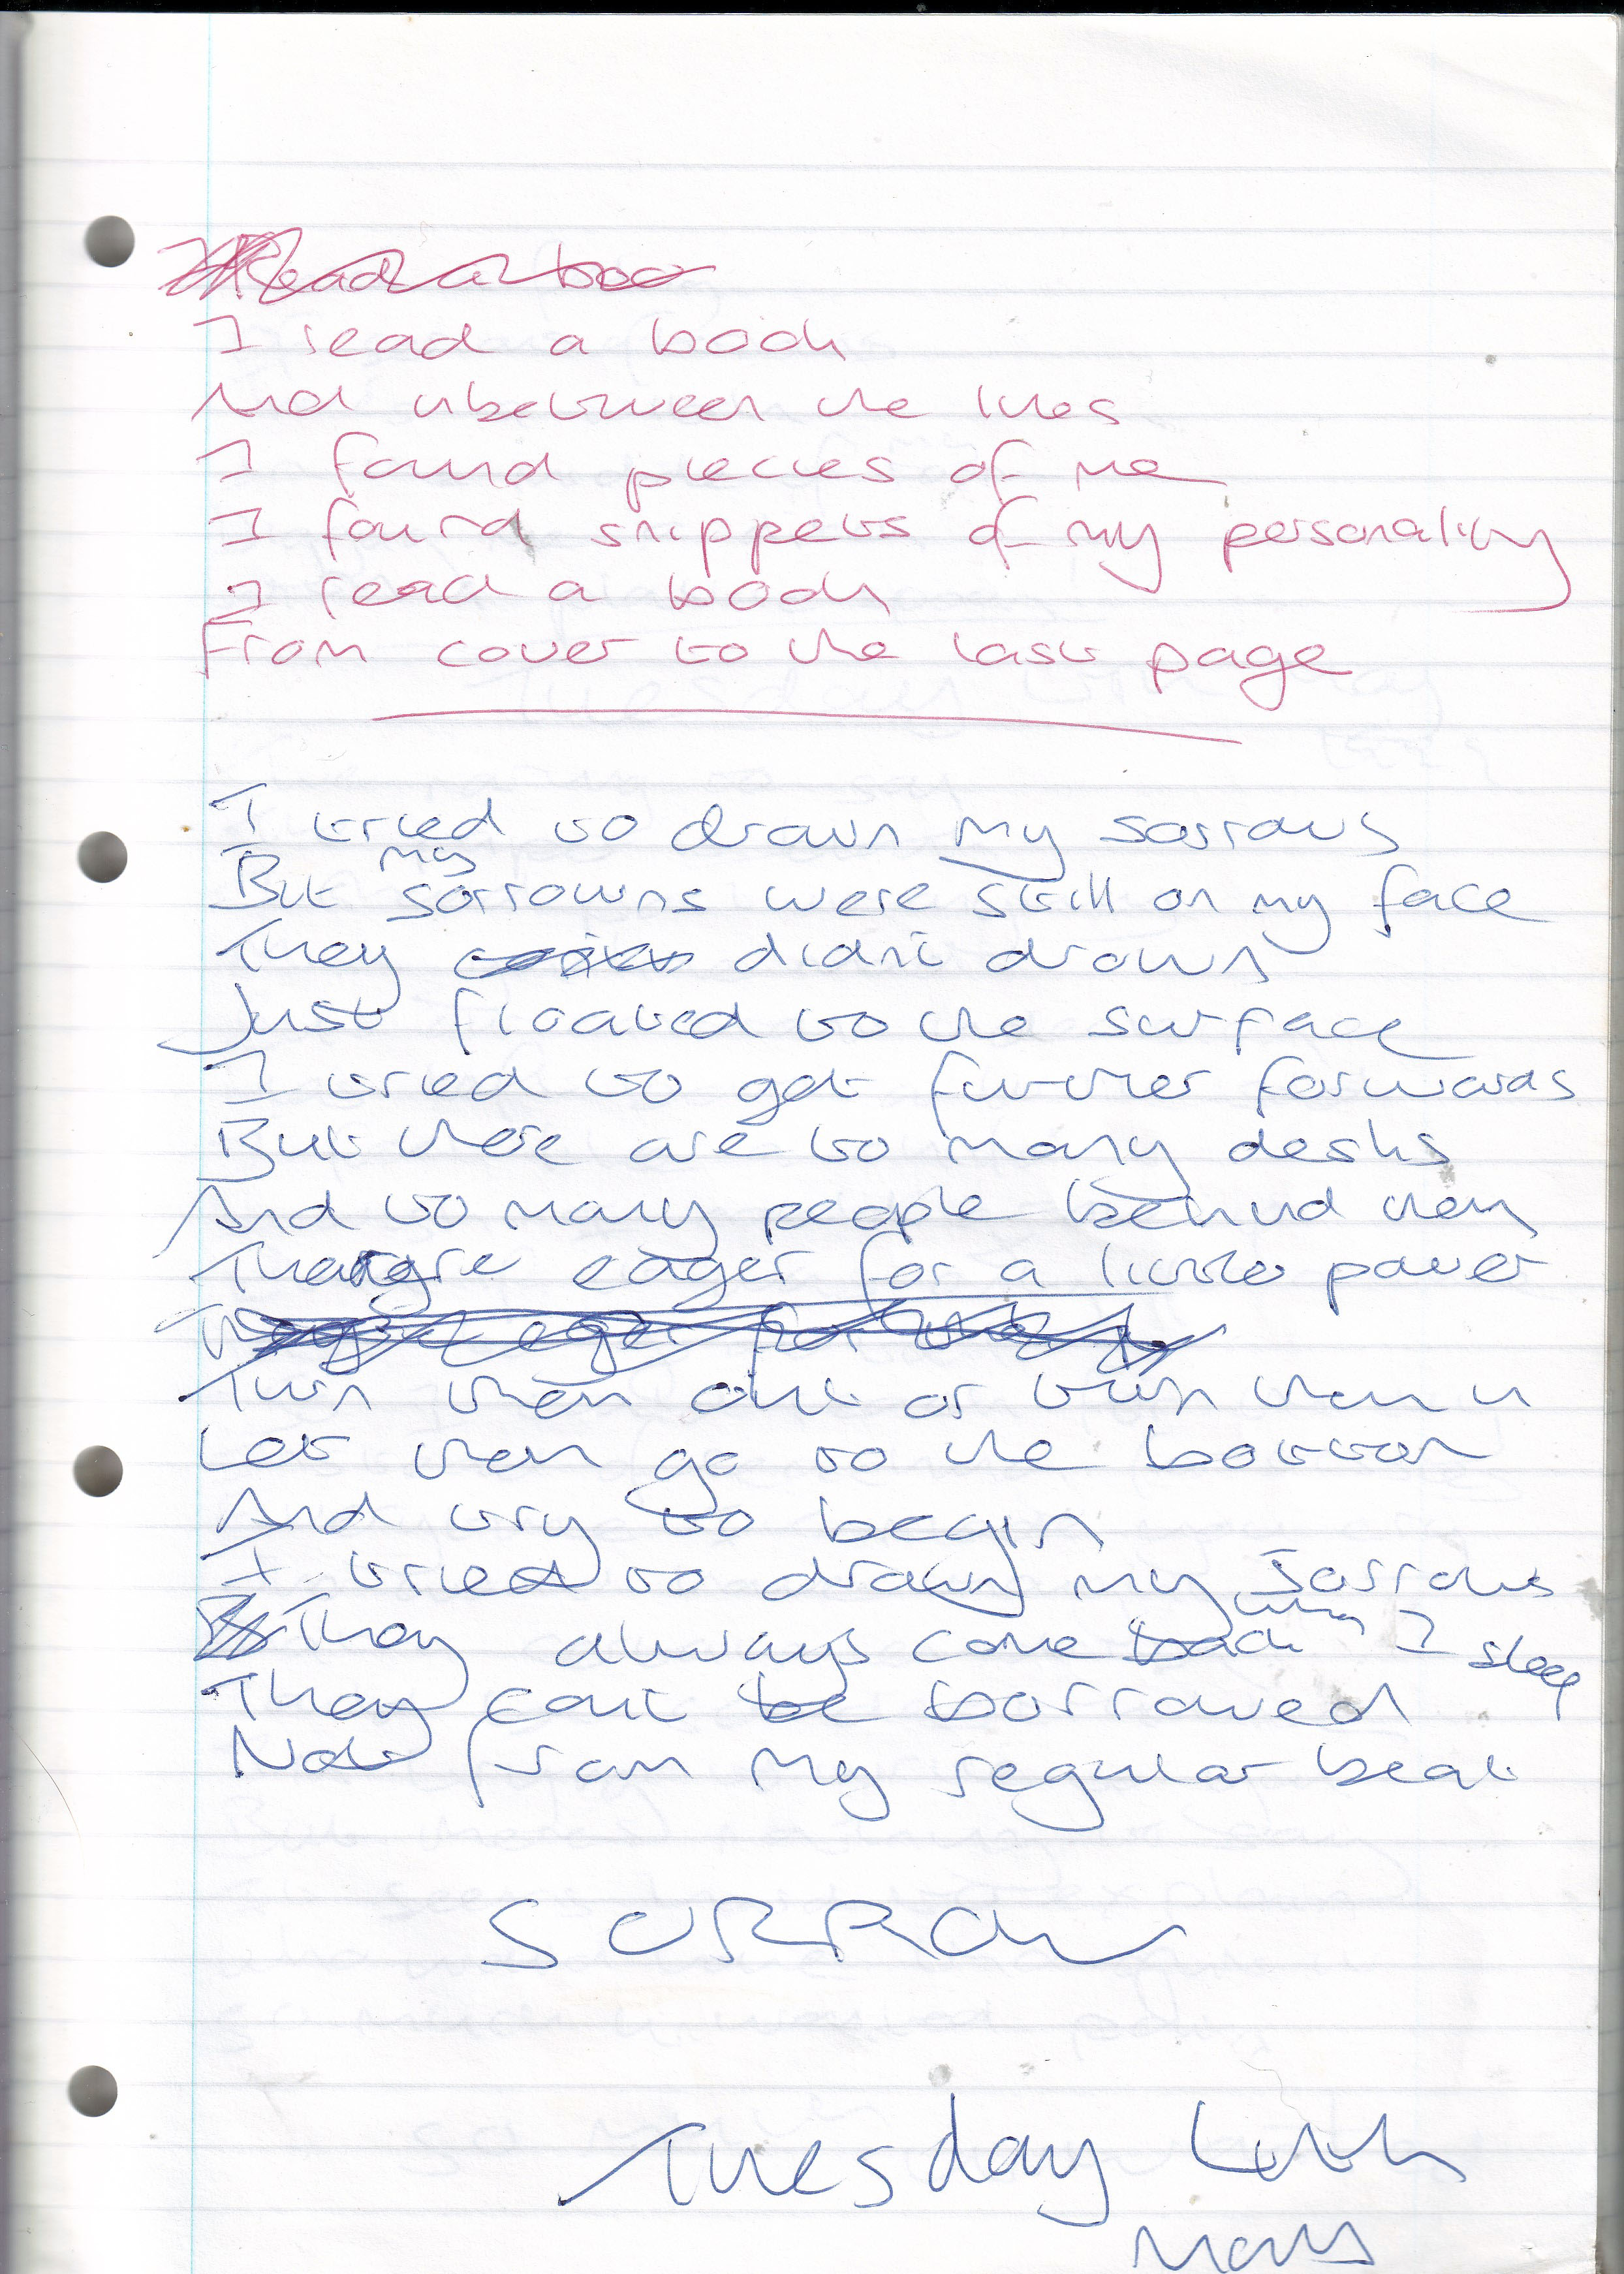 I read a book
And inbetween the lines
I found pieces of me
I found snippets of my personality
I read a book
From cover to the last page
I tried to drown my sorrows
my
But sorrowns were still on my face
They didn't drown
Just floated to the surface
I tried to get further forwards
But there are to many desks
And to many people behind them
eager for a little power
Turn them out or turn them in
Let them go to the bottom
And try to begin
I tried to drown my sorrows
when
They always come back I sleep
They can't be borrowed
Not from my regular beat
SORROW
Tuesday